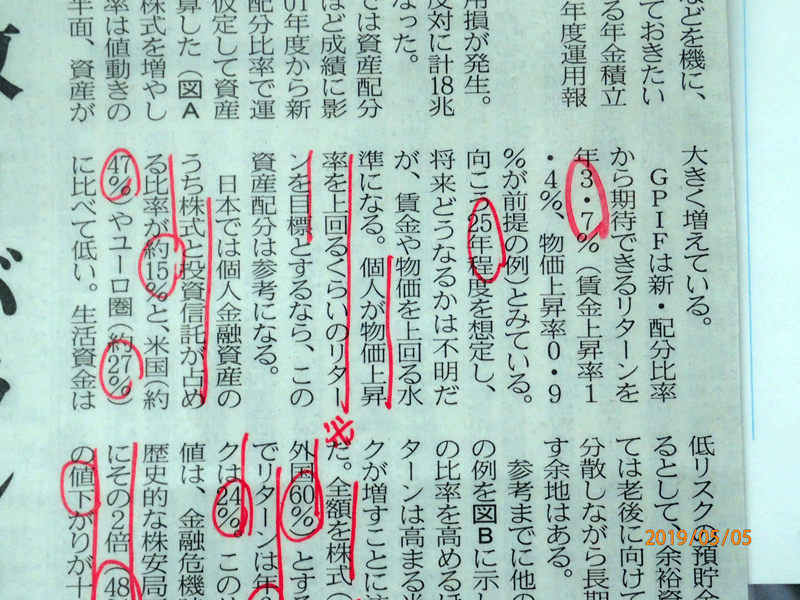 などを機に、
ておきたい
る年金積立
年度運用報
用損が発生。
反対に計18兆
なった。
では資産配分
ほど成績に影
01年度から新
配分比率で運
仮定して資産
算した（図A
株式を増やし
率は値動きの
半面、資産が
大きく増えている。
GPIFは新・配分比率
から期待できるリターンを
年3・7%（賃金上昇率1
・4%、物価上昇率0・9
%が前提の例）とみている。
向こう25年程度を想定し、
将来どうなるかは不明だ
が、賃金や物価を上回る水
準になる。個人が物価上昇
率を上回るくらいのリター
ンを目標とするなら、この
資産配分は参考になる。
日本では個人金融資産の
うち株式と投資信託が占め
る比率が約15%と、米国（約
47%）やユーロ圏（約27%）
に比べて低い。生活資金は
低リスクの預貯金
るとして、余裕資
ては老後に向けて
分散しながら長期
す余地はある。
参考までに他の
の例を図Bに示し
の比率を高めるほ
ターンは高まる半
クが増すことに
だ。全額を株式（
外国60%）とする
でリターンは年
クは24%。この
値は、金融危機
歴史的な株安局
にその2倍（48
の値下がりが十
が
2019/05/05